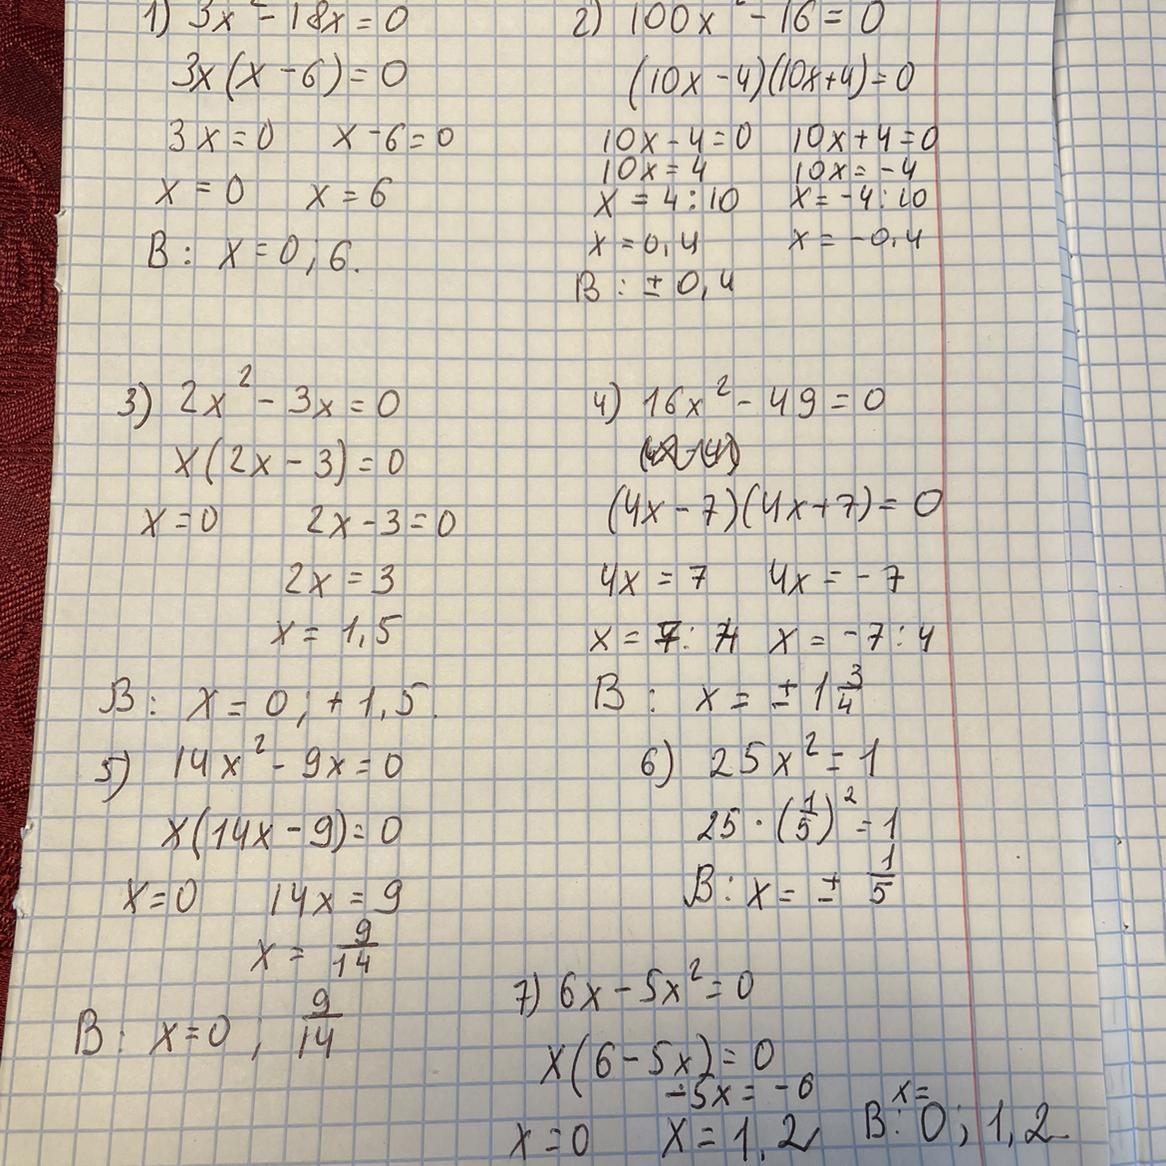 1) 3x² - 18x = 0
3x(x - 6) = 0
3x = 0    x - 6 = 0
x = 0    x = 6
В: x = 0; 6.
2) 100x² - 16 = 0
(10x - 4)(10x + 4) = 0
10x - 4 = 0    10x + 4 = 0
10x = 4    10x = -4
x = 4 : 10    x = -4 : 10
x = 0,4    x = -0,4
В: ± 0,4
3) 2x² - 3x = 0
x(2x - 3) = 0
x = 0    2x - 3 = 0
2x = 3
x = 1,5
В: x = 0; +1,5.
4) 16x² - 49 = 0
(4x - 7)(4x + 7) = 0
4x = 7    4x = -7
x = 7 : 4    x = -7 : 4
В: x = ± 1 3/4
5) 14x² - 9x = 0
x(14x - 9) = 0
x = 0    14x = 9
x = 9/14
В: x = 0, 9/14
6) 25x² = 1
25 · (1/5)² = 1
В: x = ± 1/5
7) 6x - 5x² = 0
x(6 - 5x) = 0
-5x = -6
x = 0    x = 1,2    В: x = 0; 1,2